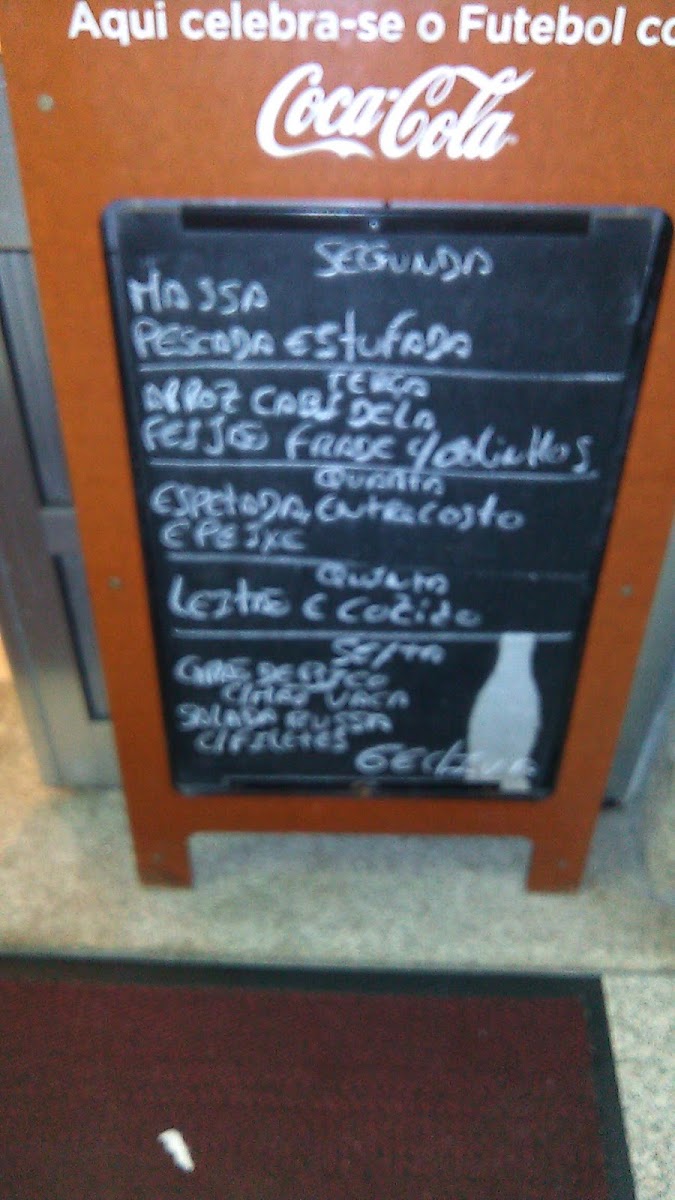 Aqui celebra-se o Futebol co
Coca-Cola
SEGUNDA
MASSA
PESCADA ESTUFADA
TERÇA
ARROZ CABIDELA
FEIJÃO FRADE
QUARTA
ESPETADA, ENTRECOSTO
E PEIXE
QUINTA
LEITÃO E COZIDO
SEXTA
VACA
SALADA RUSSA
C/FILETES